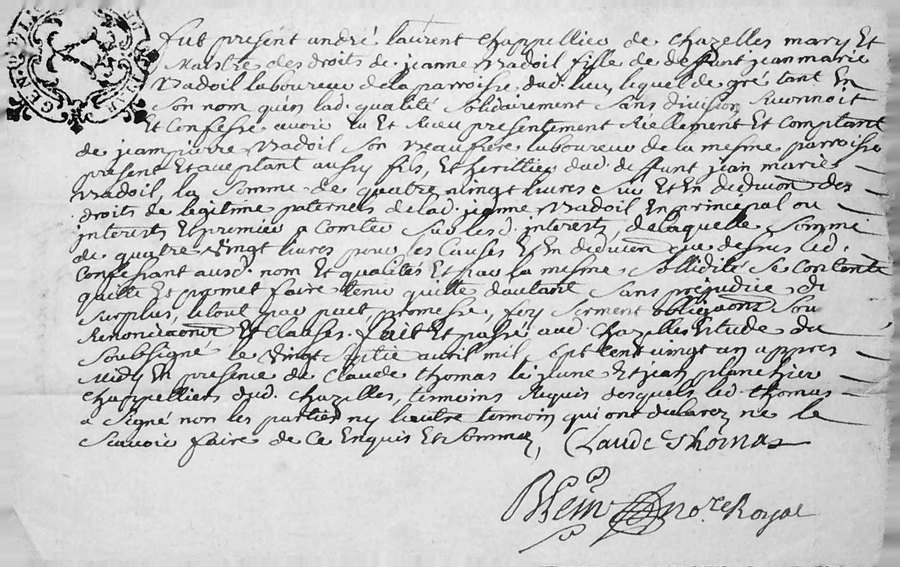 GEN DE L
fut présent andré laurent chappellier de chazelles mary Et
Maistre des droits de jeanne Nadoil fille de deffunt jean marie
Nadoil laboureur de la parroisse dud. lieu, lequel de gré tant En
son nom qu'en lad. qualité solidairement sans division Reconnoit
Et Confesse avoir Eu Et Receu presentement Réellement Et comptant
de jean pierre Nadoil son beaufrere laboureur de la mesme parroisse
present Et acceptant aussy fils, Et heritier dud. deffunt jean marie
Nadoil, la somme de quatre vingt livres sur Et En deduction des
droits de legitime paternels de lad. jeanne Nadoil En principal ou
interests Et premier a Compter sur lesd. interests, de laquelle somme
de quatre vingt livres pour les Causes Et En deduction que dessus led.
Confessant ausd. nom Et qualités Et par la mesme sollidité se contente
quitte Et promet faire tenir quitte d'autant sans prejudice du
surplus, le tout par pact, promesse, foy serment obligaons sou
Renonciaons Et clauses. fait Et passé aud. Chazelles Estude du
soubsigné le vingt septie avril mil sept cent vingt un appres
midy En presence de Claude thomas le jeune Et jean planchier
chappelliers dud. chazelles, temoins Requis desquels led. thomas
a signé non les parties ny l'autre temoin qui ont declarez ne le
scavoir faire de ce Enquis Et sommez, Claude Thomas
nore Royal